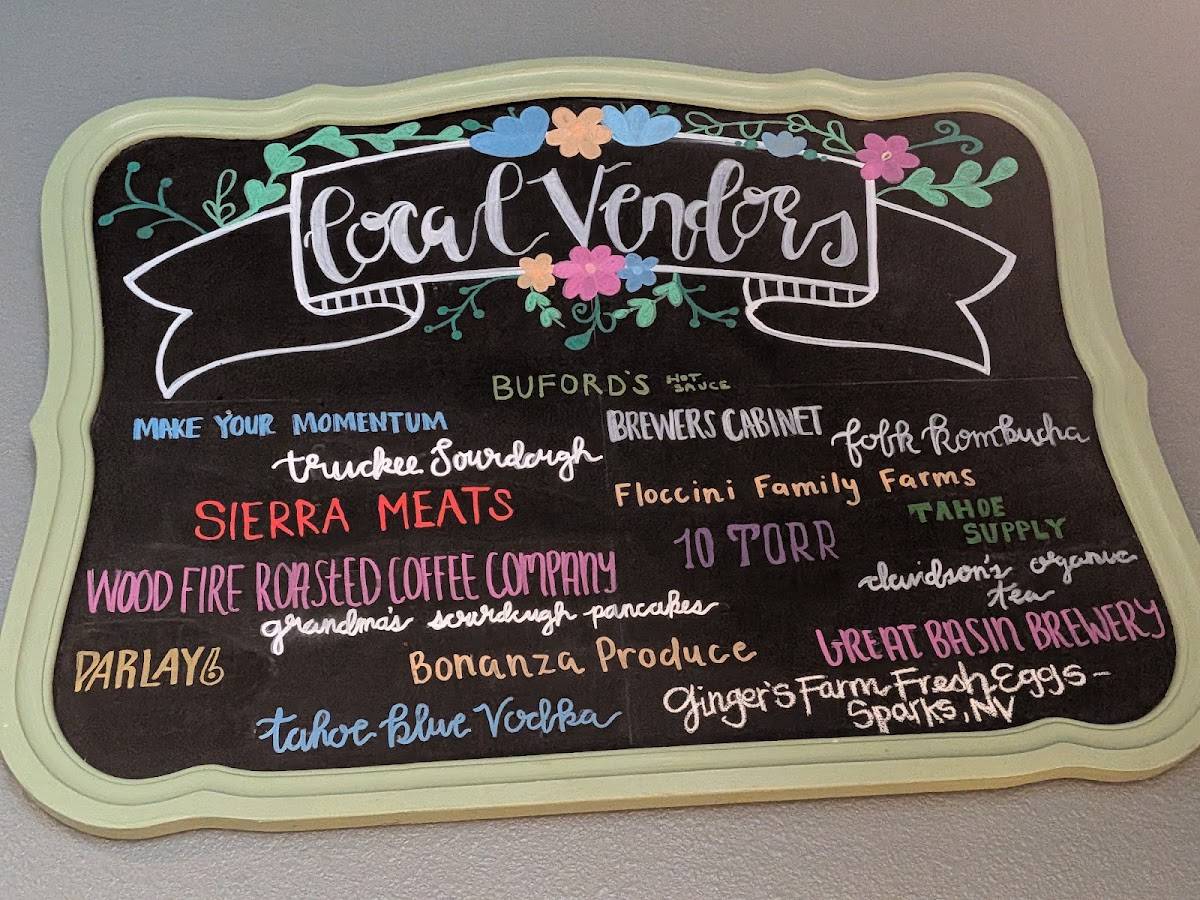 Local Vendors
BUFORD'S HOT SAUCE
MAKE YOUR MOMENTUM
BREWERS CABINET
fobk kombucha
truckee Sourdough
Floccini Family Farms
SIERRA MEATS
10 TORR
TAHOE
SUPPLY
WOOD FIRE ROASTED COFFEE COMPANY
davidson's organic
tea
grandma's sourdough pancakes
GREAT BASIN BREWERY
PARLAY6
Bonanza Produce
Ginger's Farm Fresh Eggs -
Sparks, NV
tahoe blue Vodka